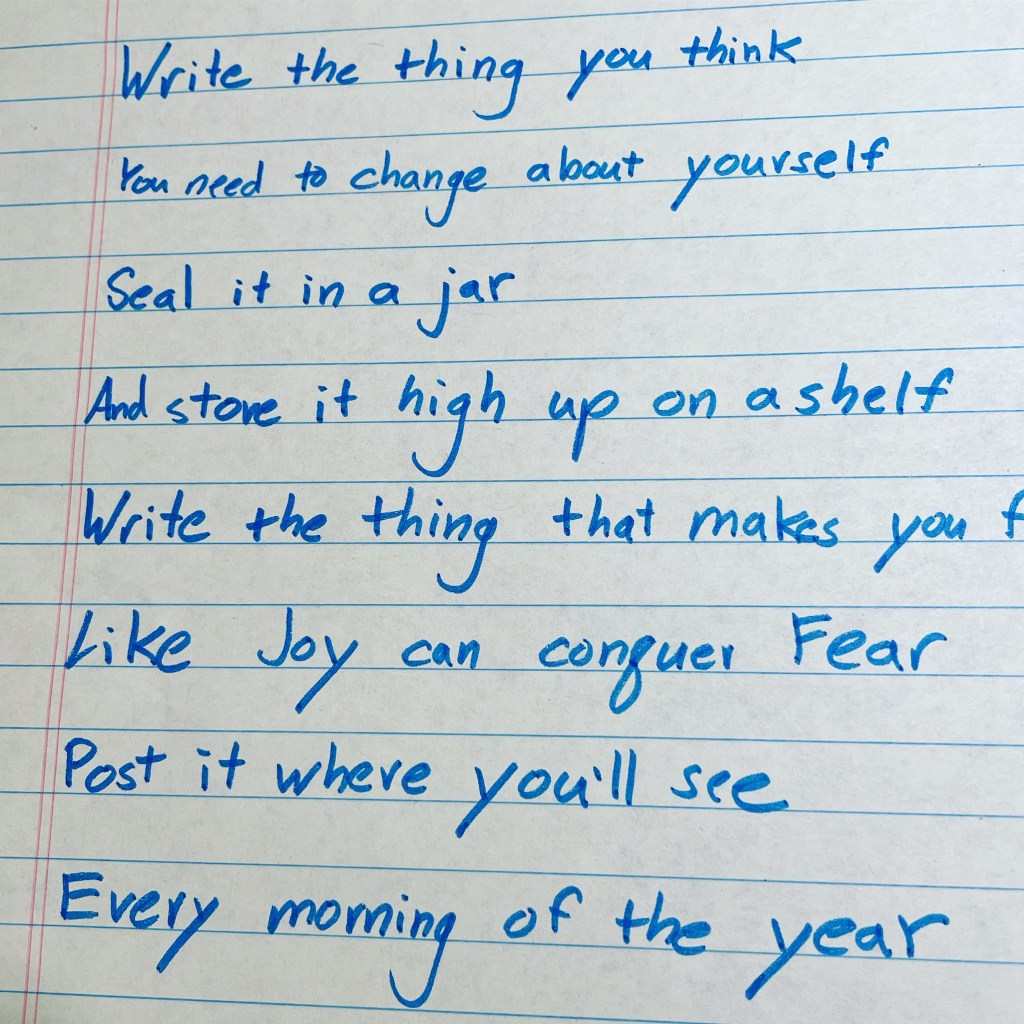 Write the thing you think
You need to change about yourself
Seal it in a jar
And store it high up on a shelf
Write the thing that makes you
Like Joy can conquer Fear
Post it where you'll see
Every morning of the year